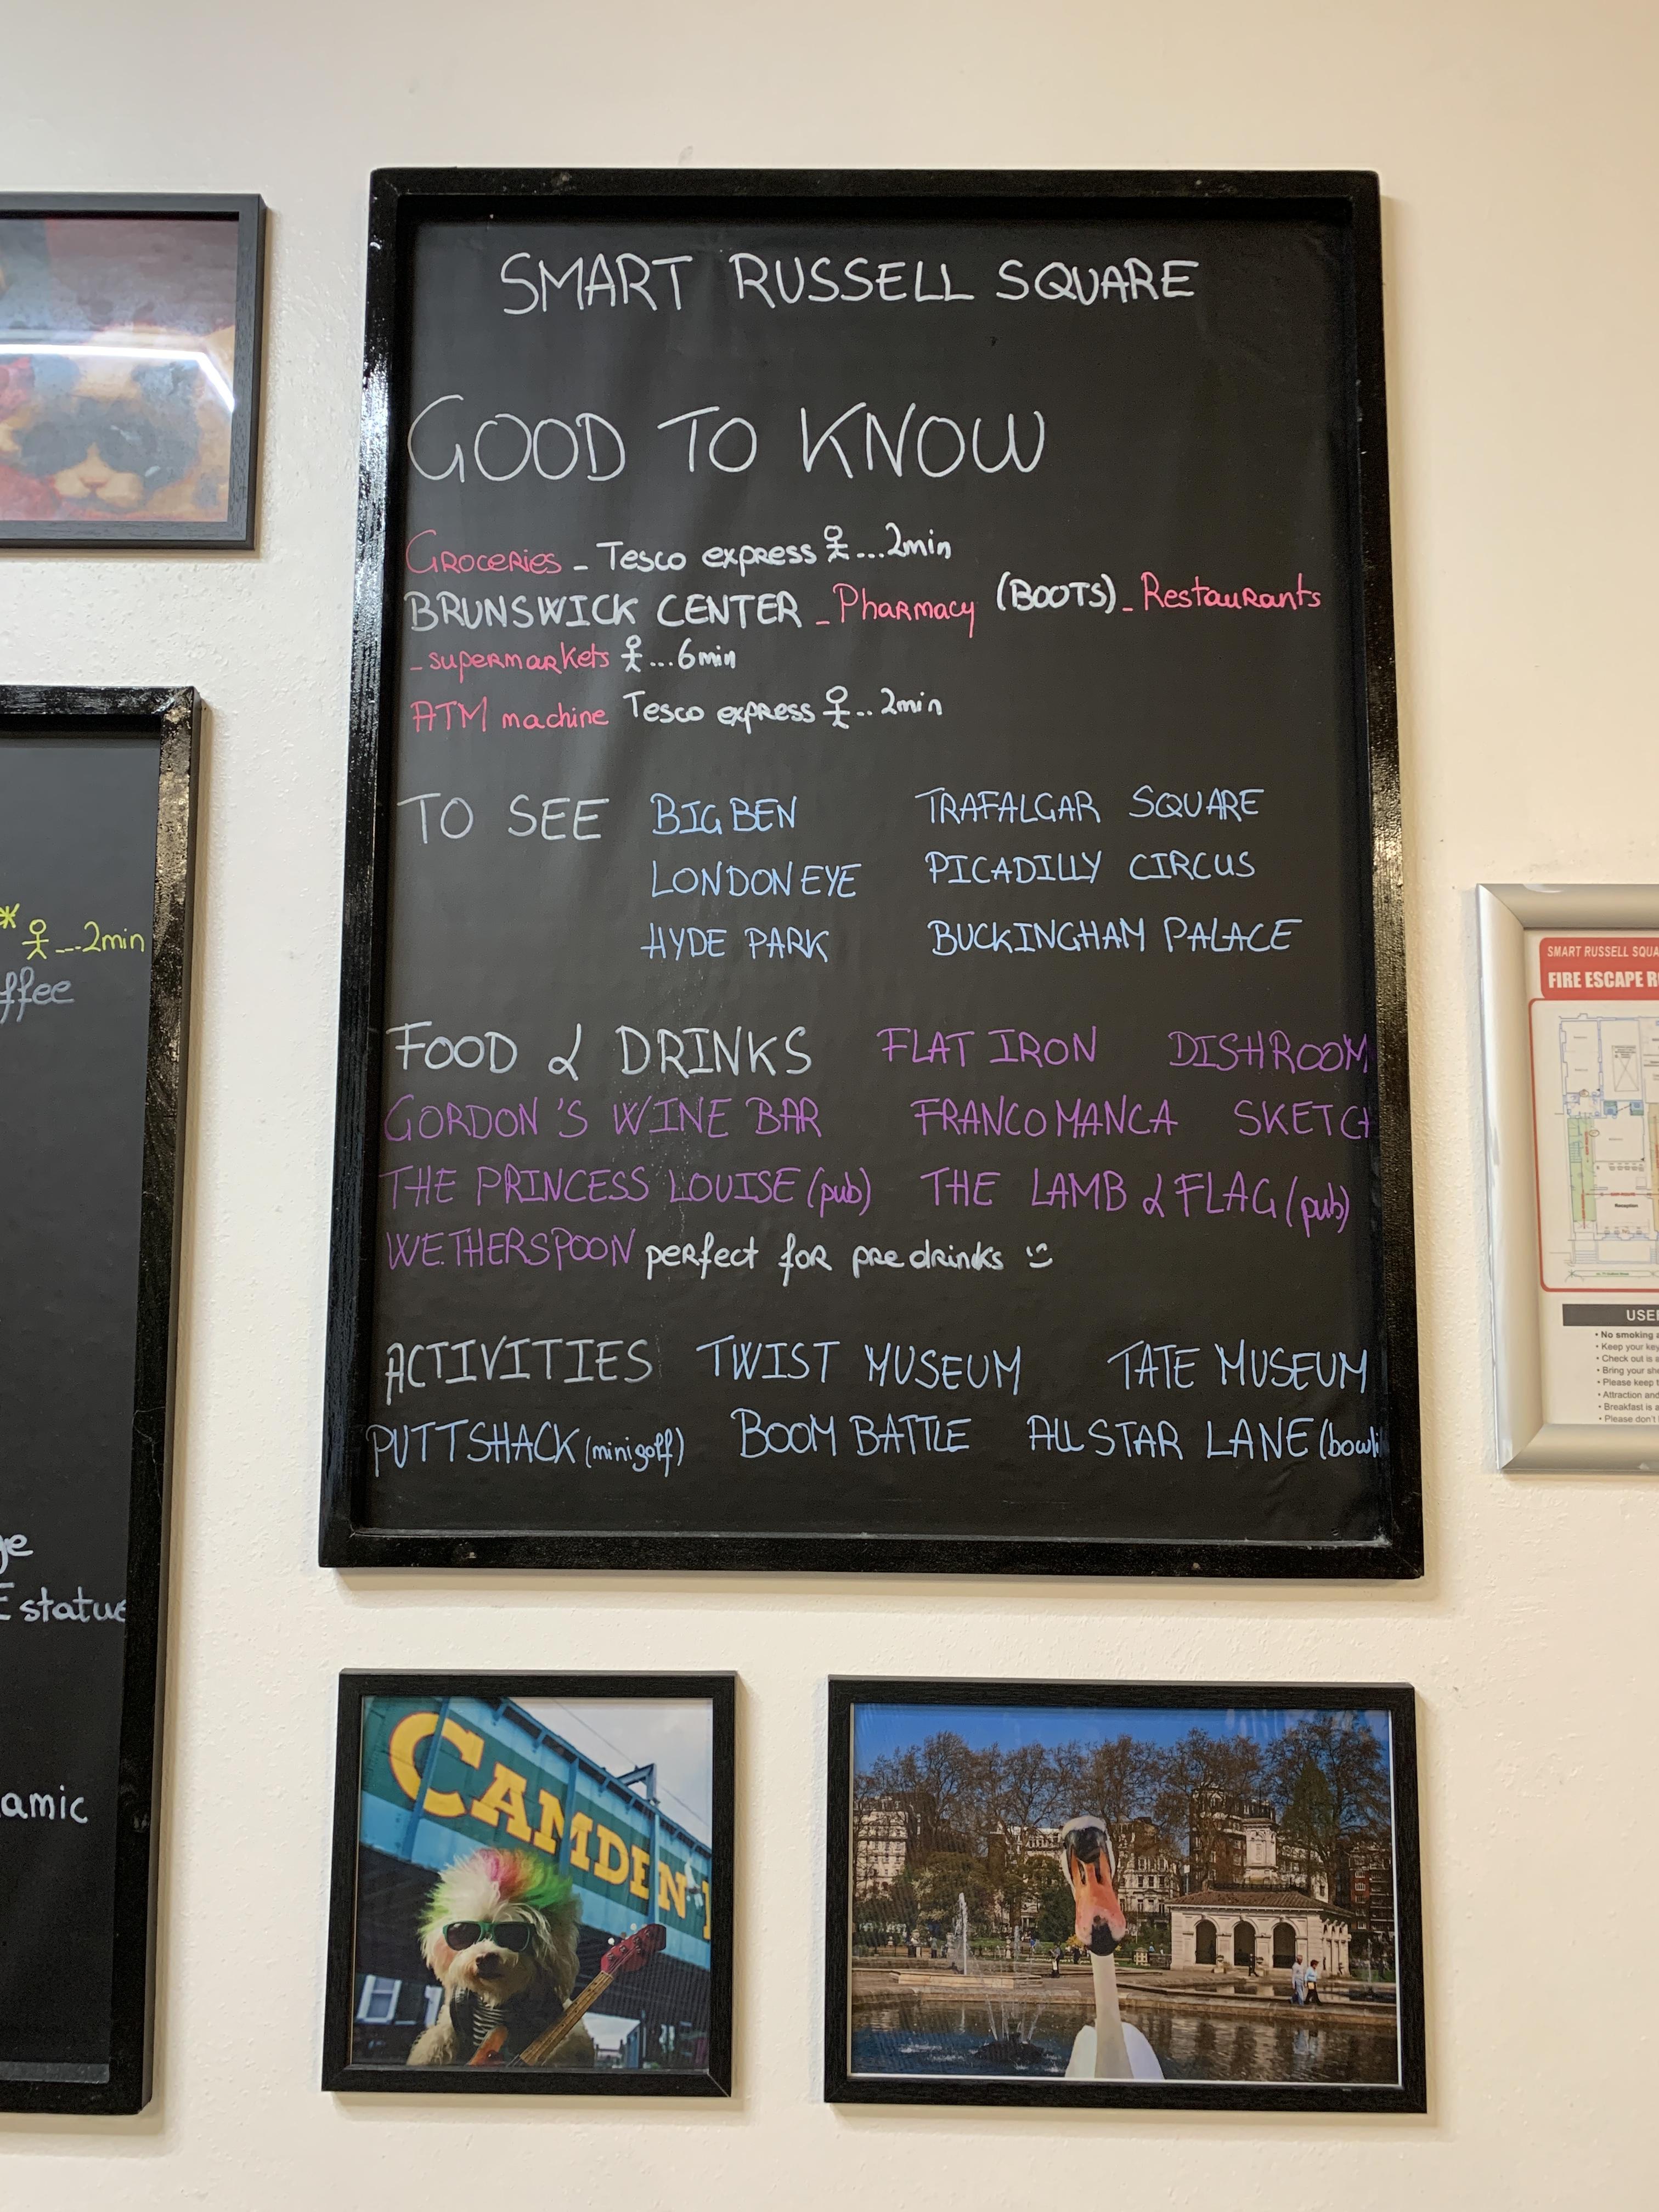 SMART RUSSELL SQUARE
GOOD TO KNOW
Groceries - Tesco express ...2min
BRUNSWICK CENTER - Pharmacy (BOOTS) - Restaurants
- supermarkets ...6min
ATM machine Tesco express .. 2min
TO SEE BIG BEN TRAFALGAR SQUARE
LONDON EYE PICADILLY CIRCUS
HYDE PARK BUCKINGHAM PALACE
FOOD & DRINKS FLAT IRON DISHROOM
GORDON'S WINE BAR FRANCO MANCA SKETCH
THE PRINCESS LOUISE (pub) THE LAMB & FLAG (pub)
WETHERSPOON perfect for pre drinks
ACTIVITIES TWIST MUSEUM TATE MUSEUM
PUTTSHACK (minigolf) BOOM BATTLE ALL STAR LANE (bowli
* ...2min
ffee
ge
E statue
amic
CAMDEN
SMART RUSSELL SQUA
FIRE ESCAPE R
Reception
USE
• No smoking a
• Keep your key
• Check out is a
• Bring your she
• Please keep t
• Attraction and
• Breakfast is a
• Please don't